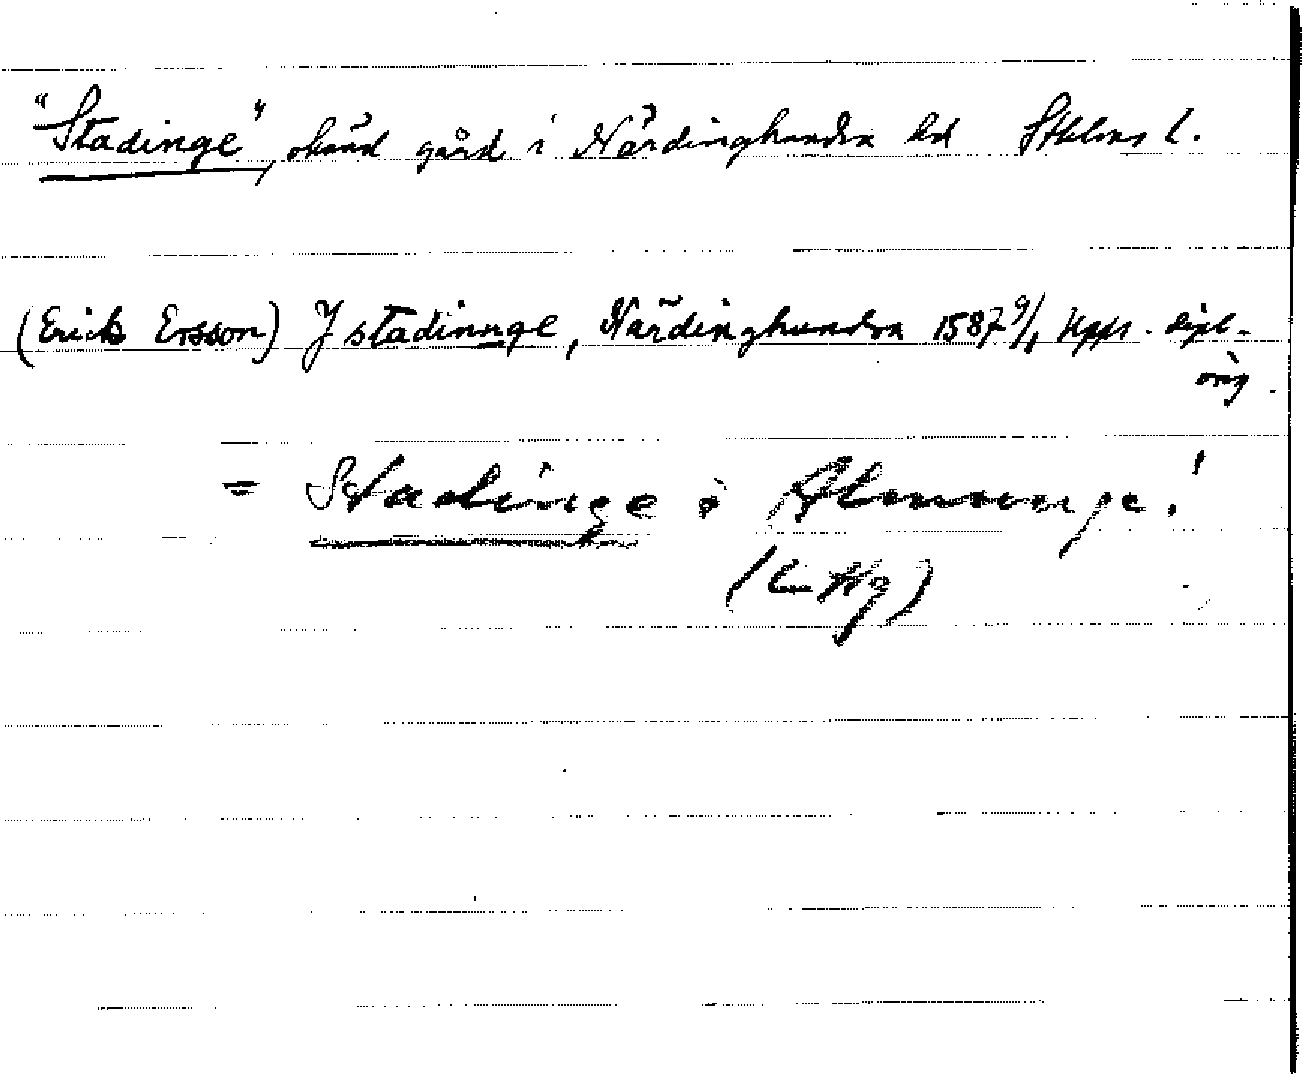 "Stadinge", okänd gård i Närdinghundra hd Sthlms l.
(Erick Ersson) J stadinnge, Närdinghundra 1587 9/1 Upps. dipl.
orig.
= Stadinge i Almunge!
(L Hg)